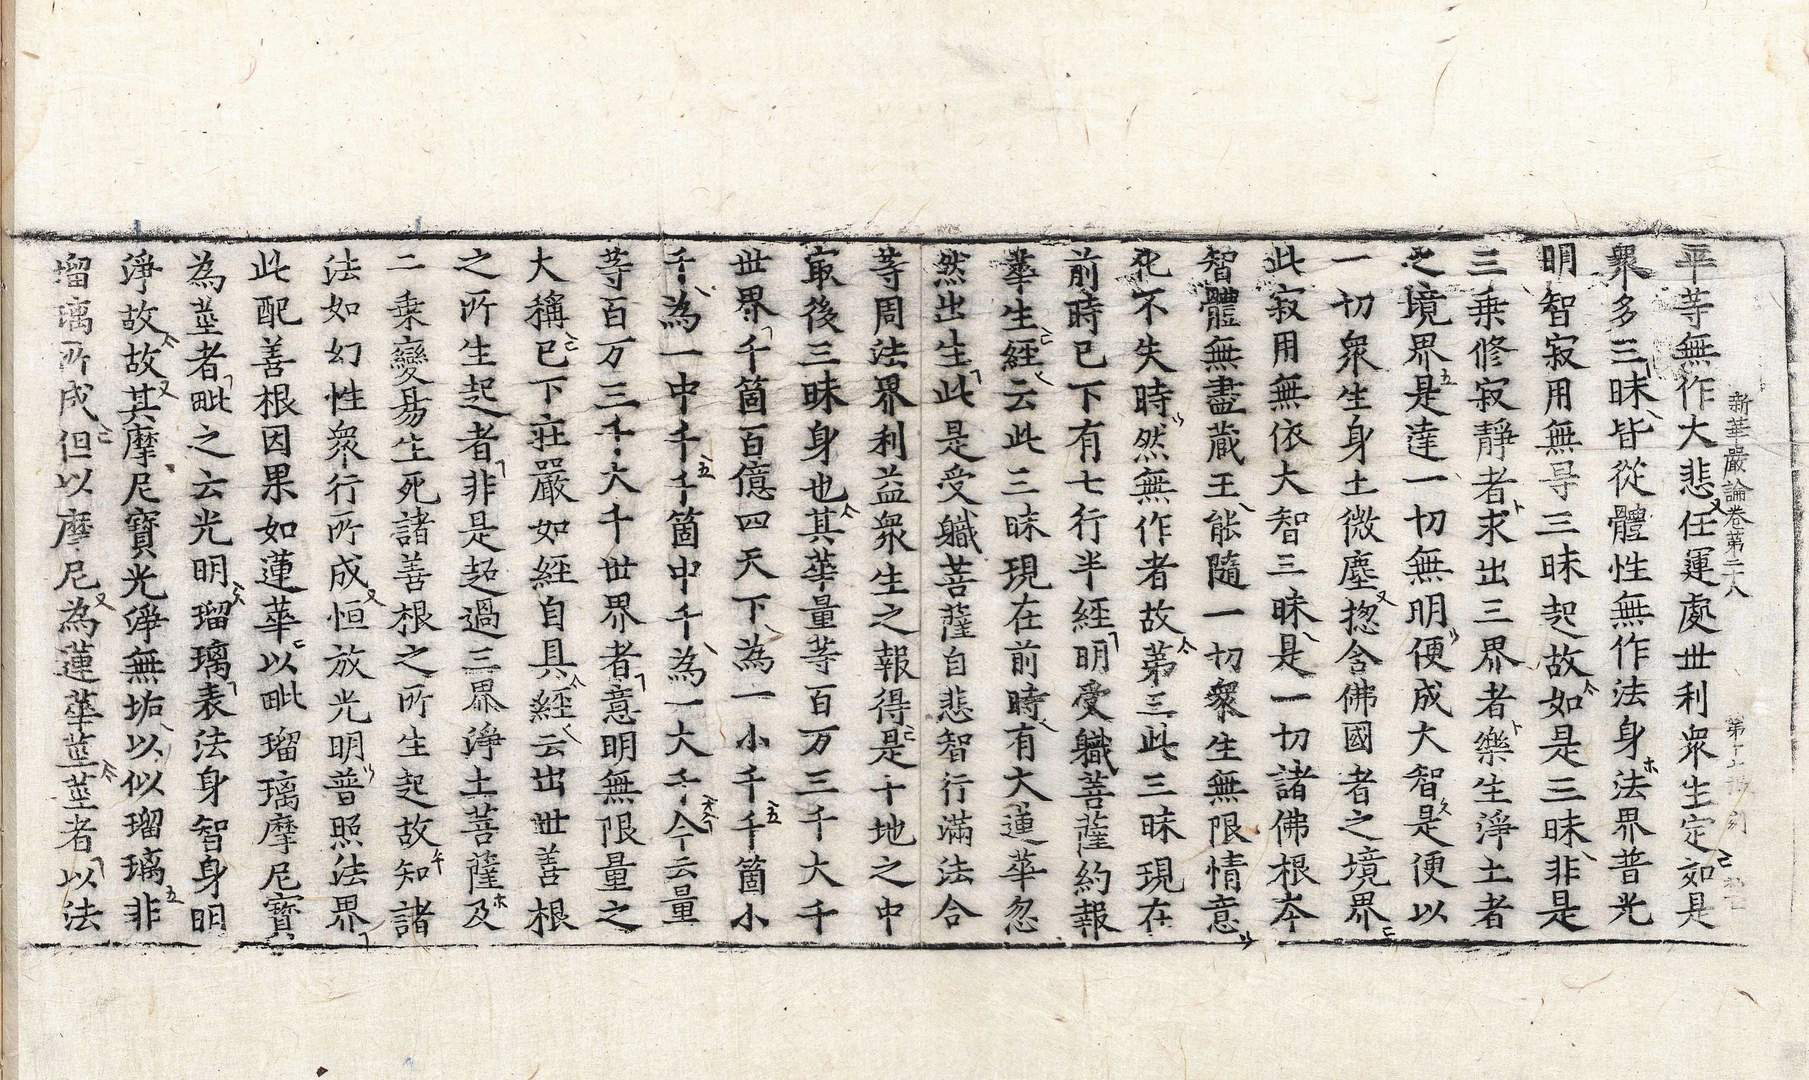 新華嚴論卷第二十八
平等無作大悲任運處世利衆生定如是
衆多三昧皆從體性無作法身法界普光
明智寂用無㝵三昧起故如是三昧非是
三乗修寂靜者求出三界者樂生淨土者
之境界是達一切無明便成大智是便以
一切衆生身土微塵揔含佛國者之境界
此寂用無依大智三昧是一切諸佛根夲
智體無盡蔵王能隨一切衆生無限情意
化不失時然無作者故第三此三昧現在
前時已下有七行半經明受軄菩薩約報
華生經云此三昧現在前時有大蓮華忽
然出生此是受軄菩薩自悲智行滿法合
等周法界利益衆生之報得是十地之中
㝡後三昧身也其華量等百万三千大千
世界千箇百億四天下為一小千千箇小
千為一中千千箇中千為一大千今云量
等百万三千大千世界者意明無限量之
大稱已下莊嚴如經自具經云出世善根
之所生起者非是超過三界淨土菩薩及
二乗變易生死諸善根之所生起故知諸
法如幻性衆行所成恒放光明普照法界
此配善根因果如蓮華以毗瑠璃摩尼寳
為莖者毗之云光明瑠璃表法身智身明
淨故故其摩尼寳光淨無垢以似瑠璃非
瑠璃所成但以摩尼為蓮華莖莖者以法